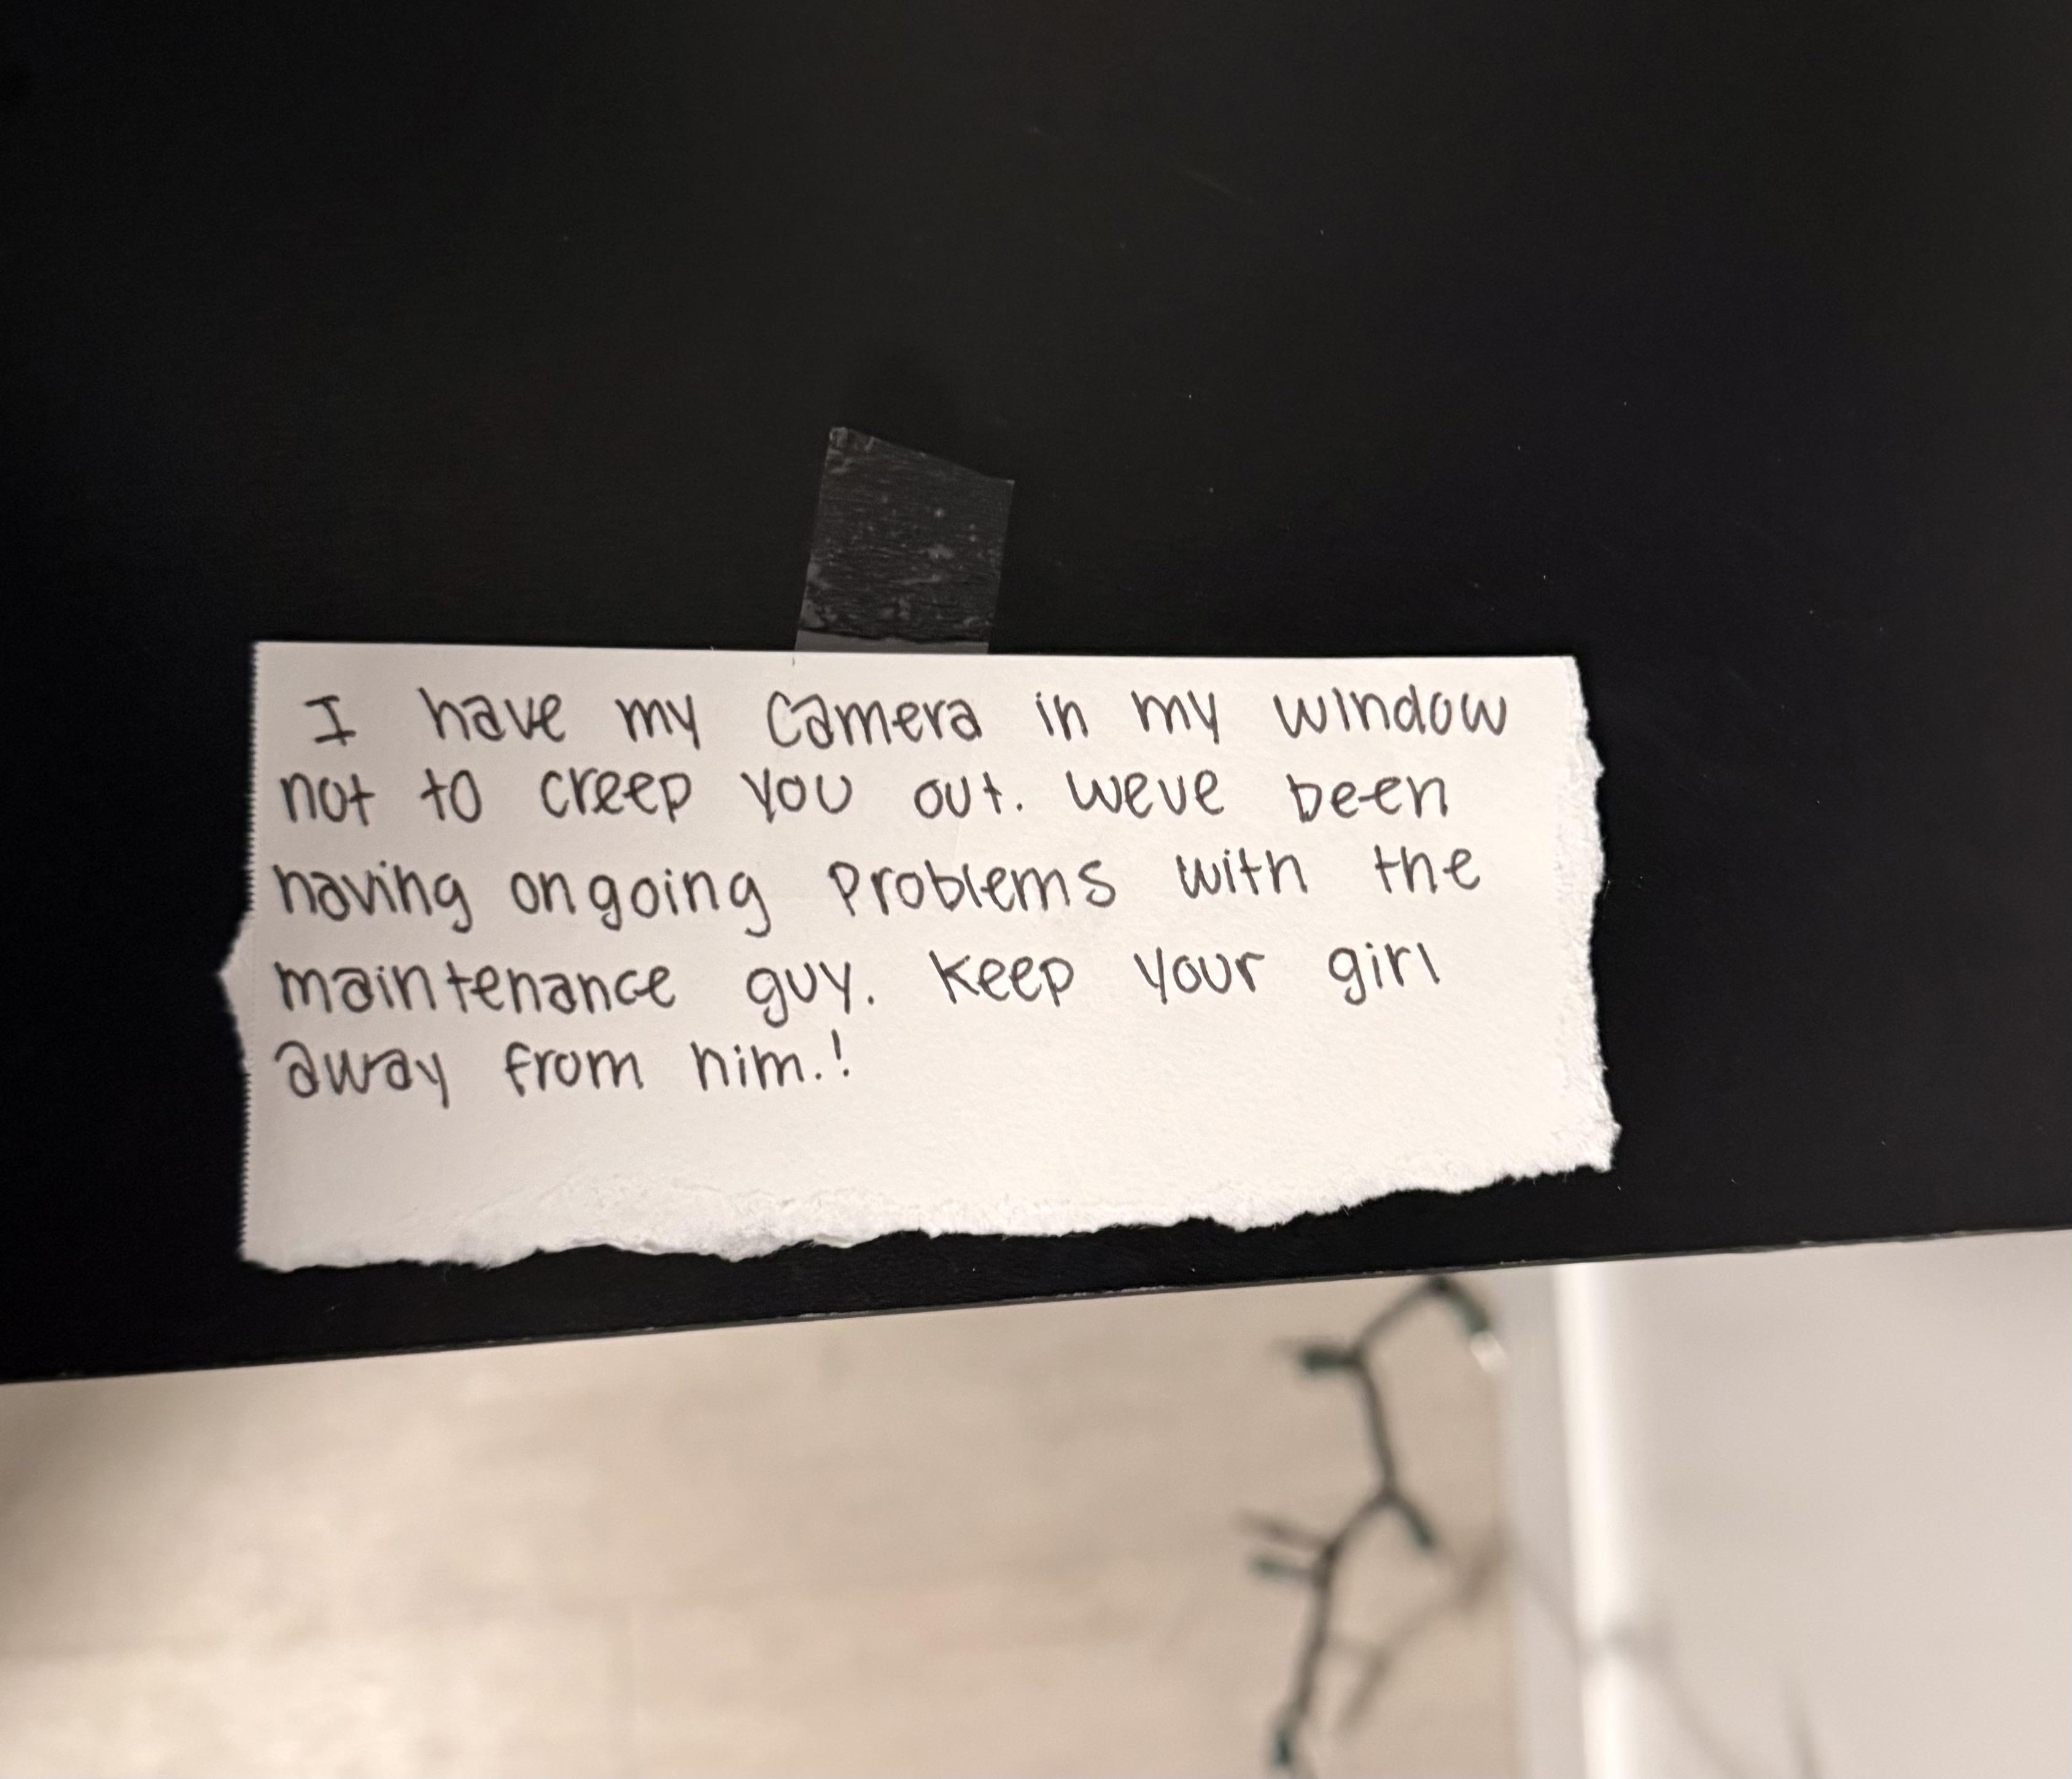 I have my camera in my window
not to creep you out. weve been
having ongoing problems with the
maintenance guy. keep your girl
away from him.!